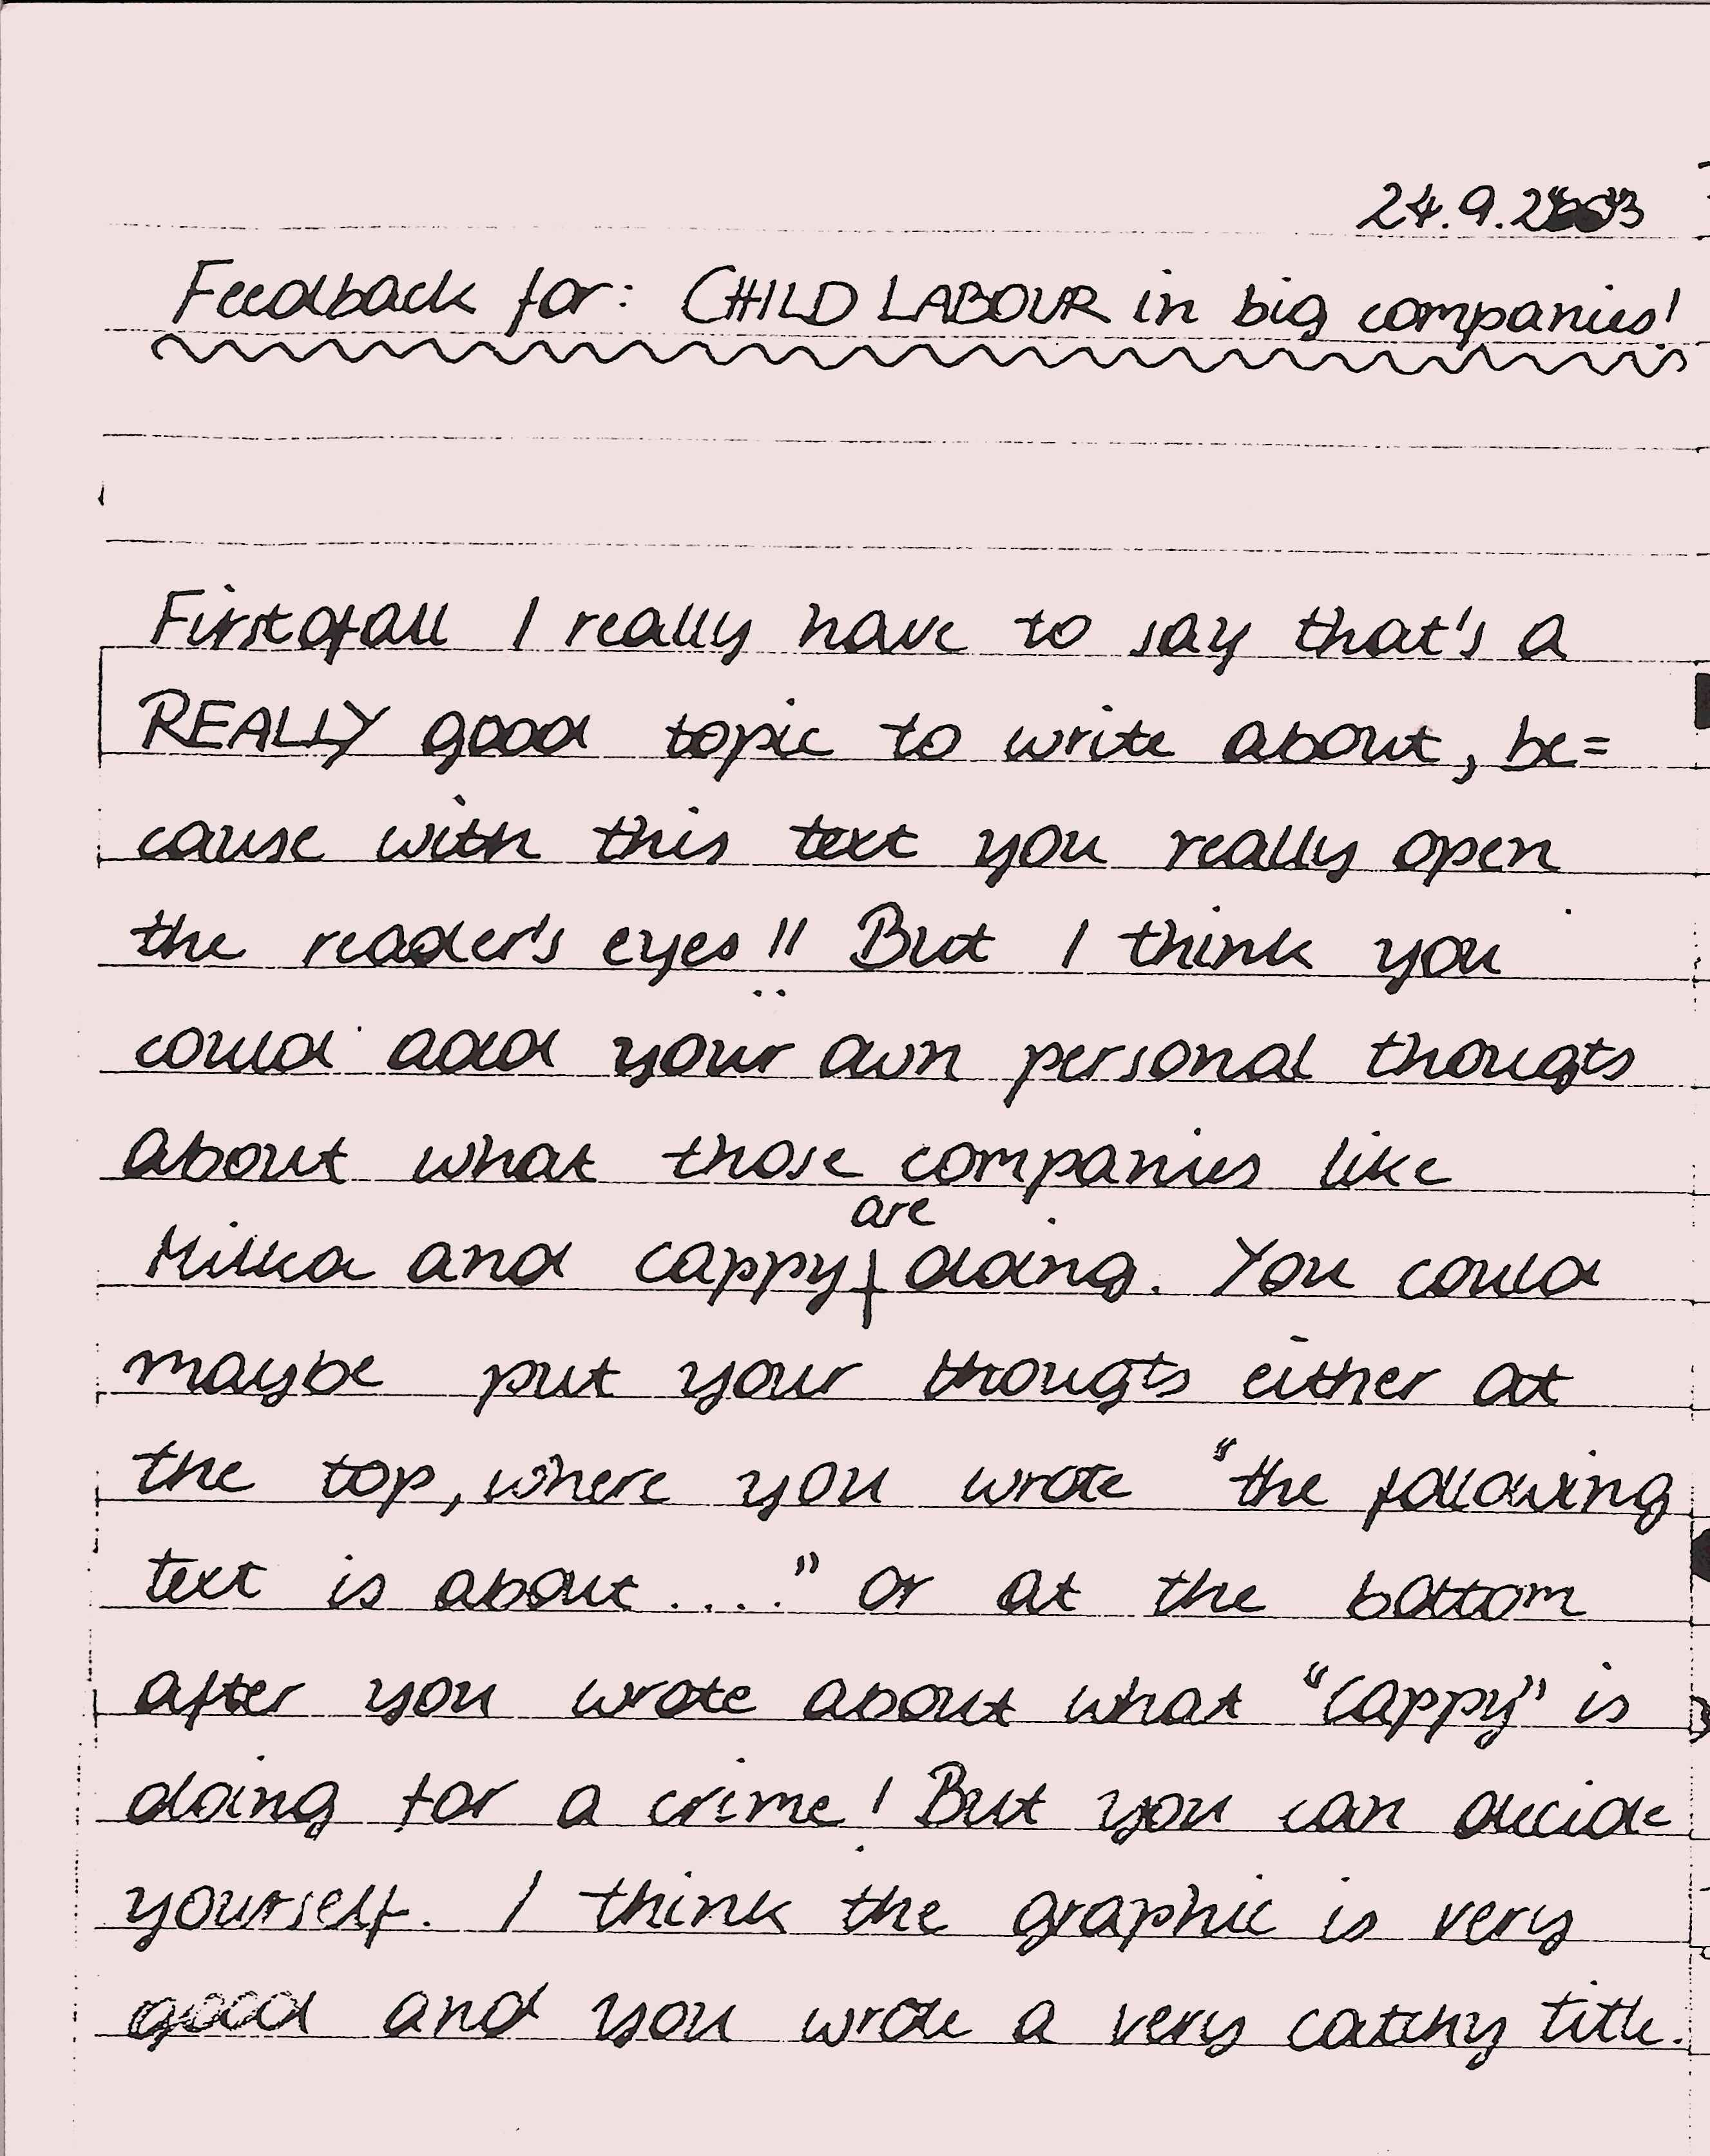 24.9.
Feedback for: CHILD LABOUR in big companies!
Firstofall I really have to say that's a
REALLY good topic to write about, be=
cause with this text you really open
the reader's eyes!! But I think you
could add your own personal thougts
about what those companies like
are
Milka and cappy doing. You could
maybe put your thougts either at
the top, where you wrote "the following
text is about...." or at the bottom
after you wrote about what "Cappy" is
doing for a crime! But you can decide
yourself. I think the graphic is very
good and you wrote a very catchy title.